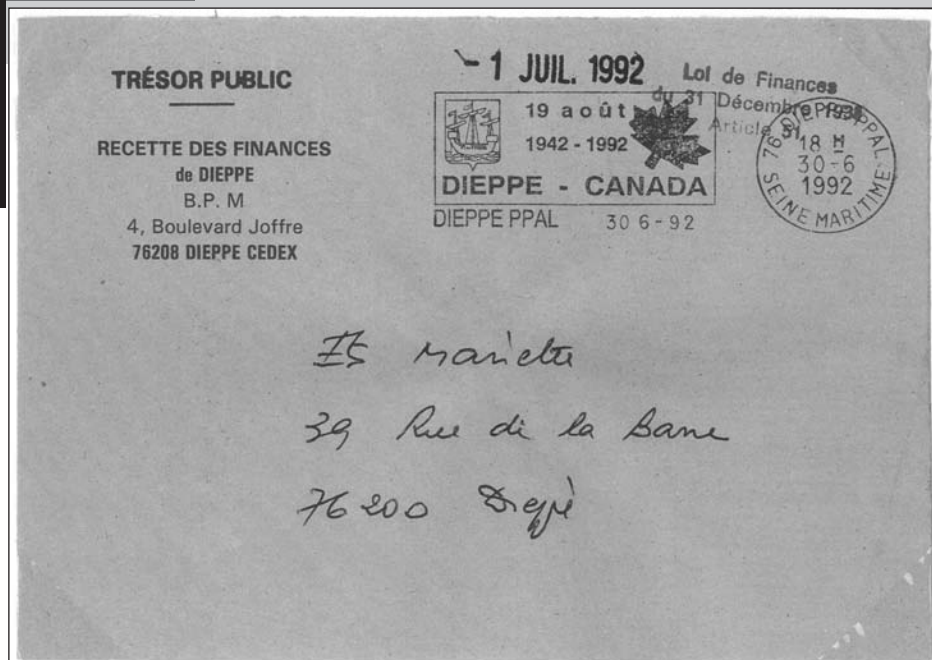 TRÉSOR PUBLIC
RECETTE DES FINANCES
de DIEPPE
B.P. M
4, Boulevard Joffre
76208 DIEPPE CEDEX
- 1 JUIL. 1992
Loi de Finances
du 31 Décembre
Article
19 août
1942 - 1992
DIEPPE - CANADA
DIEPPE PPAL 30 6 - 92
76 DIEPPE PPAL
18 H
30 - 6
1992
SEINE MARITIME
Mariette
39 Rue de la Barre
76200 Dieppe